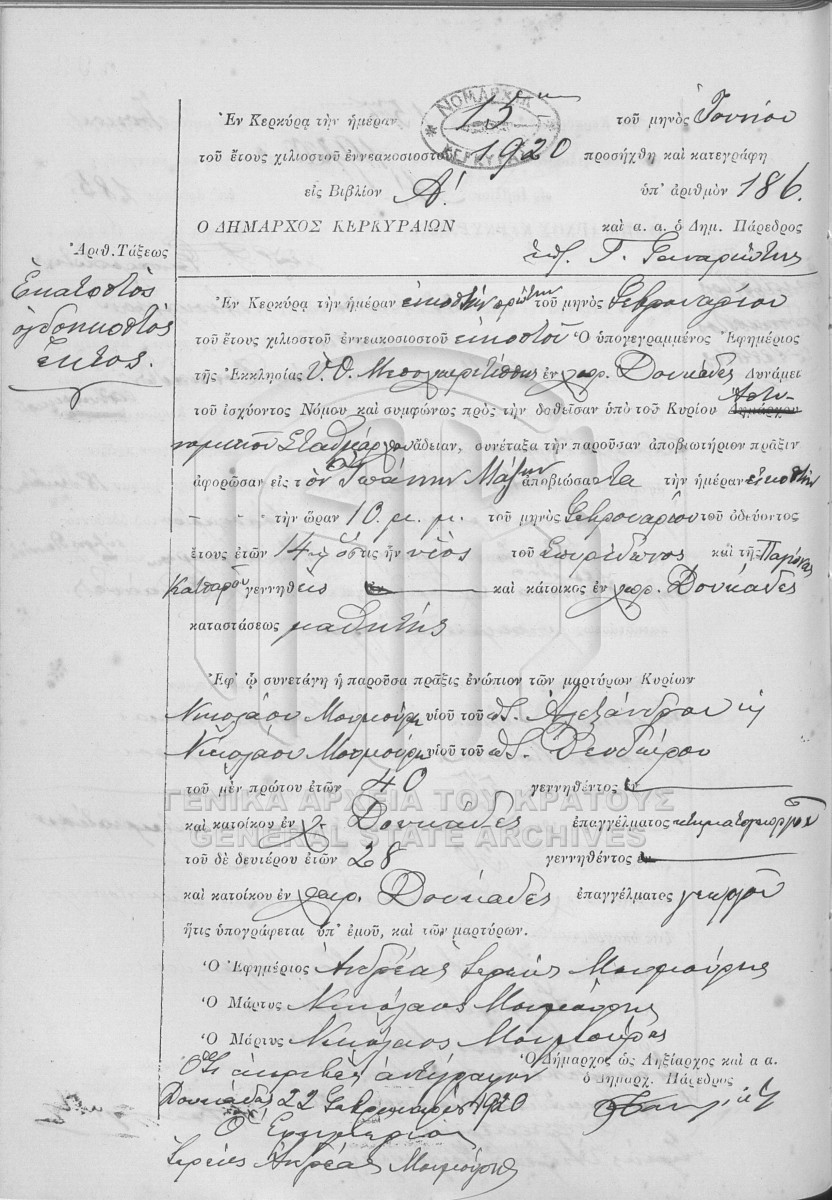 ΝΟΜΑΡΧΙΑ
ΚΕΡΚΥΡΑΣ
Ἐν Κερκύρᾳ τὴν ἡμέραν 15 τοῦ μηνὸς Ἰουνίου
τοῦ ἔτους χιλιοστοῦ ἐννεακοσιοστοῦ 1920 προσήχθη καὶ κατεγράφη
εἰς Βιβλίον Α! ὑπ' ἀριθμὸν 186.
Ο ΔΗΜΑΡΧΟΣ ΚΕΡΚΥΡΑΙΩΝ καὶ α. α. ὁ Δημ. Πάρεδρος
Ἀριθ. Τάξεως
Ἑκατοστὸς
ὀγδοηκοστὸς
ἕκτος.
Ἐν Κερκύρᾳ τὴν ἡμέραν εἰκοστὴν πρώτην τοῦ μηνὸς Φεβρουαρίου
τοῦ ἔτους χιλιοστοῦ ἐννεακοσιοστοῦ εἰκοστοῦ Ὁ ὑπογεγραμμένος Ἐφημέριος
τῆς Ἐκκλησίας Ὑ. Θ. ἐν χωρ. Δουκάδες Δυνάμει
τοῦ ἰσχύοντος Νόμου καὶ συμφώνως πρὸς τὴν δοθεῖσαν ὑπὸ τοῦ Κυρίου Δημάρχου Ἀστυ-
νομικοῦ Σταθμάρχου ἄδειαν, συνέταξα τὴν παροῦσαν ἀποβιωτήριον πρᾶξιν
ἀφορῶσαν εἰς τὸν Ἰωάννην ἀποβιώσαντα τὴν ἡμέραν εἰκοστὴν
- - - τὴν ὥραν 10 μ. μ. τοῦ μηνὸς Φεβρουαρίου τοῦ ὁδεύοντος
ἔτους ἐτῶν 14 ὅστις ἦν υἱὸς τοῦ Σπυρίδωνος καὶ τῆς
γεννηθεὶς ἐν καὶ κάτοικος ἐν χωρ. Δουκάδες
καταστάσεως μαθητής
Ἐφ' ᾧ συνετάγη ἡ παροῦσα πρᾶξις ἐνώπιον τῶν μαρτύρων Κυρίων
Νικολάου Μουμούρη υἱοῦ τοῦ ποτ. Ἀλεξάνδρου κ
Νικολάου Μουμούρη υἱοῦ τοῦ ποτ.
τοῦ μὲν πρώτου ἐτῶν 40 γεννηθέντος ἐν
ΓΕΝΙΚΑ ΑΡΧΕΙΑ ΤΟΥ ΚΡΑΤΟΥΣ
καὶ κατοίκου ἐν χ. Δουκάδες ἐπαγγέλματος κτηματογεωργοῦ
GENERAL STATE ARCHIVES
τοῦ δὲ δευτέρου ἐτῶν 28 γεννηθέντος ἐν
καὶ κατοίκου ἐν χωρ. Δουκάδες ἐπαγγέλματος γεωργοῦ
ἥτις ὑπογράφεται ὑπ' ἐμοῦ, καὶ τῶν μαρτύρων.
Ὁ Ἐφημέριος Ἀνδρέας Ἱερεὺς Μουμούρης
Ὁ Μάρτυς Νικόλαος Μουμούρης
Ὁ Μάρτυς Νικόλαος Μουμούρης
Ὅτι ἀκριβὲς ἀντίγραφον
Ὁ Δήμαρχος ὡς Ληξίαρχος καὶ α α.
ὁ Δημαρχ. Πάρεδρος
Δουκάδες 22 Φεβρουαρίου 1920
Ὁ Ἐφημέριος
Ἱερεὺς Ἀνδρέας Μουμούρης